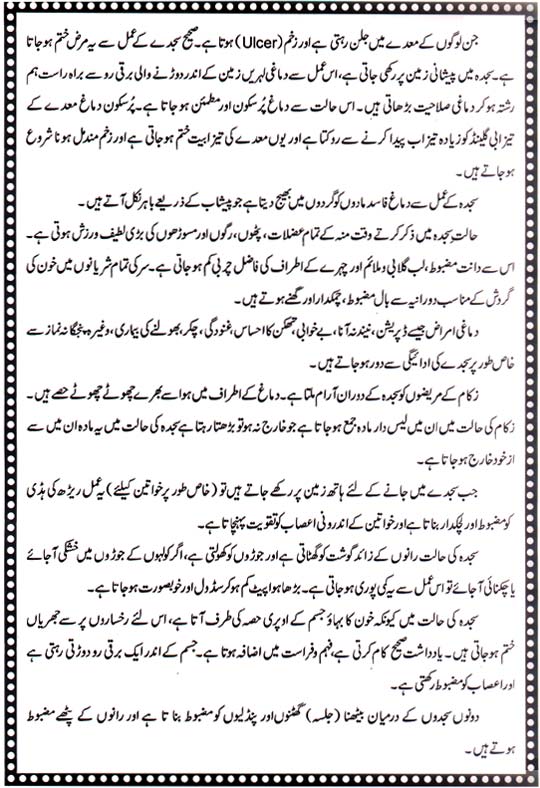 جن لوگوں کے معدے میں جلن رہتی ہے اور زخم (Ulcer) ہوتا ہے۔ صحیح سجدے کے عمل سے یہ مرض ختم ہو جاتا
ہے۔ سجدہ میں پیشانی زمین پر رکھی جاتی ہے، اس عمل سے دماغی لہریں زمین کے اندر دوڑنے والی برقی رو سے براہ راست ہم
رشتہ ہو کر دماغی صلاحیت بڑھاتی ہیں۔ اس حالت سے دماغ پُرسکون اور مطمئن ہو جاتا ہے۔ پُرسکون دماغ معدے کے
تیزابی گلینڈ کو زیادہ تیزاب پیدا کرنے سے روکتا ہے اور یوں معدے کی تیزابیت ختم ہو جاتی ہے اور زخم مندمل ہونا شروع
ہو جاتے ہیں۔
سجدہ کے عمل سے دماغ فاسد مادوں کو گردوں میں بھیج دیتا ہے جو پیشاب کے ذریعے باہر نکل آتے ہیں۔
حالتِ سجدہ میں ذکر کرتے وقت منہ کے تمام عضلات، پٹھوں، رگوں اور مسوڑھوں کی بڑی لطیف ورزش ہوتی ہے۔
اس سے دانت مضبوط، لب گلابی و ملائم اور چہرے کے اطراف کی فاضل چربی کم ہو جاتی ہے۔ سر کی تمام شریانوں میں خون کی
گردش کے مناسب دورانیہ سے بال مضبوط، چمکدار اور گھنے ہوتے ہیں۔
دماغی امراض جیسے ڈپریشن، نیند نہ آنا، بے خوابی، تھکن کا احساس، غنودگی، چکر، بھولنے کی بیماری، وغیرہ پنجگانہ نماز سے
خاص طور پر سجدے کی ادائیگی سے دور ہو جاتے ہیں۔
زکام کے مریضوں کو سجدہ کے دوران آرام ملتا ہے۔ دماغ کے اطراف میں ہوا سے بھرے چھوٹے چھوٹے حصے ہیں۔
زکام کی حالت میں ان میں لیس دار مادہ جمع ہو جاتا ہے جو خارج نہ ہو تو بڑھتا رہتا ہے سجدہ کی حالت میں یہ مادہ ان میں سے
از خود خارج ہو جاتا ہے۔
جب سجدے میں جانے کے لئے ہاتھ زمین پر رکھے جاتے ہیں تو (خاص طور پر خواتین کیلئے) یہ عمل ریڑھ کی ہڈی
کو مضبوط اور لچکدار بناتا ہے اور خواتین کے اندرونی اعصاب کو تقویت پہنچاتا ہے۔
سجدہ کی حالت رانوں کے زائد گوشت کو گھٹاتی ہے اور جوڑوں کو کھولتی ہے، اگر کولہوں کے جوڑوں میں خشکی آجائے
یا چکنائی آجائے تو اس عمل سے یہ کمی پوری ہو جاتی ہے۔ بڑھا ہوا پیٹ کم ہو کر سڈول اور خوبصورت ہو جاتا ہے۔
سجدہ کی حالت میں کیونکہ خون کا بہاؤ جسم کے اوپری حصہ کی طرف آتا ہے، اس لئے رخساروں پر سے جھریاں
ختم ہو جاتی ہیں۔ یادداشت صحیح کام کرتی ہے، فہم و فراست میں اضافہ ہوتا ہے۔ جسم کے اندر ایک برقی رو دوڑتی رہتی ہے
اور اعصاب کو مضبوط رکھتی ہے۔
دونوں سجدوں کے درمیان بیٹھنا (جلسہ) گھٹنوں اور پنڈلیوں کو مضبوط بناتا ہے اور رانوں کے پٹھے مضبوط
ہوتے ہیں۔